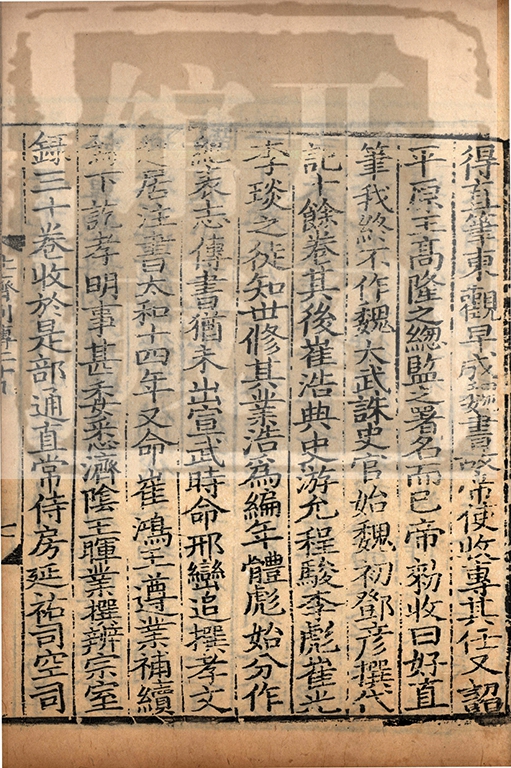 得直筆東觀早成魏書故帝使收專其任又詔
平原王高隆之總監之署名而已帝勑收曰好直
筆我終不作魏太武誅史官始魏初鄧彦撰代
記十餘卷其後崔浩典史游允程駿李彪崔光
李琰之徒知世修其業浩爲編年體彪始分作
紀表志傳書猶未出宣武時命邢巒追撰孝文
起居注書太和十四年又命崔鴻王遵業補續
焉下訖孝明事甚委悉濟陰王暉業撰辨宗室
録三十卷收於是部通直常侍房延祐司空司
北齊列傳二十九